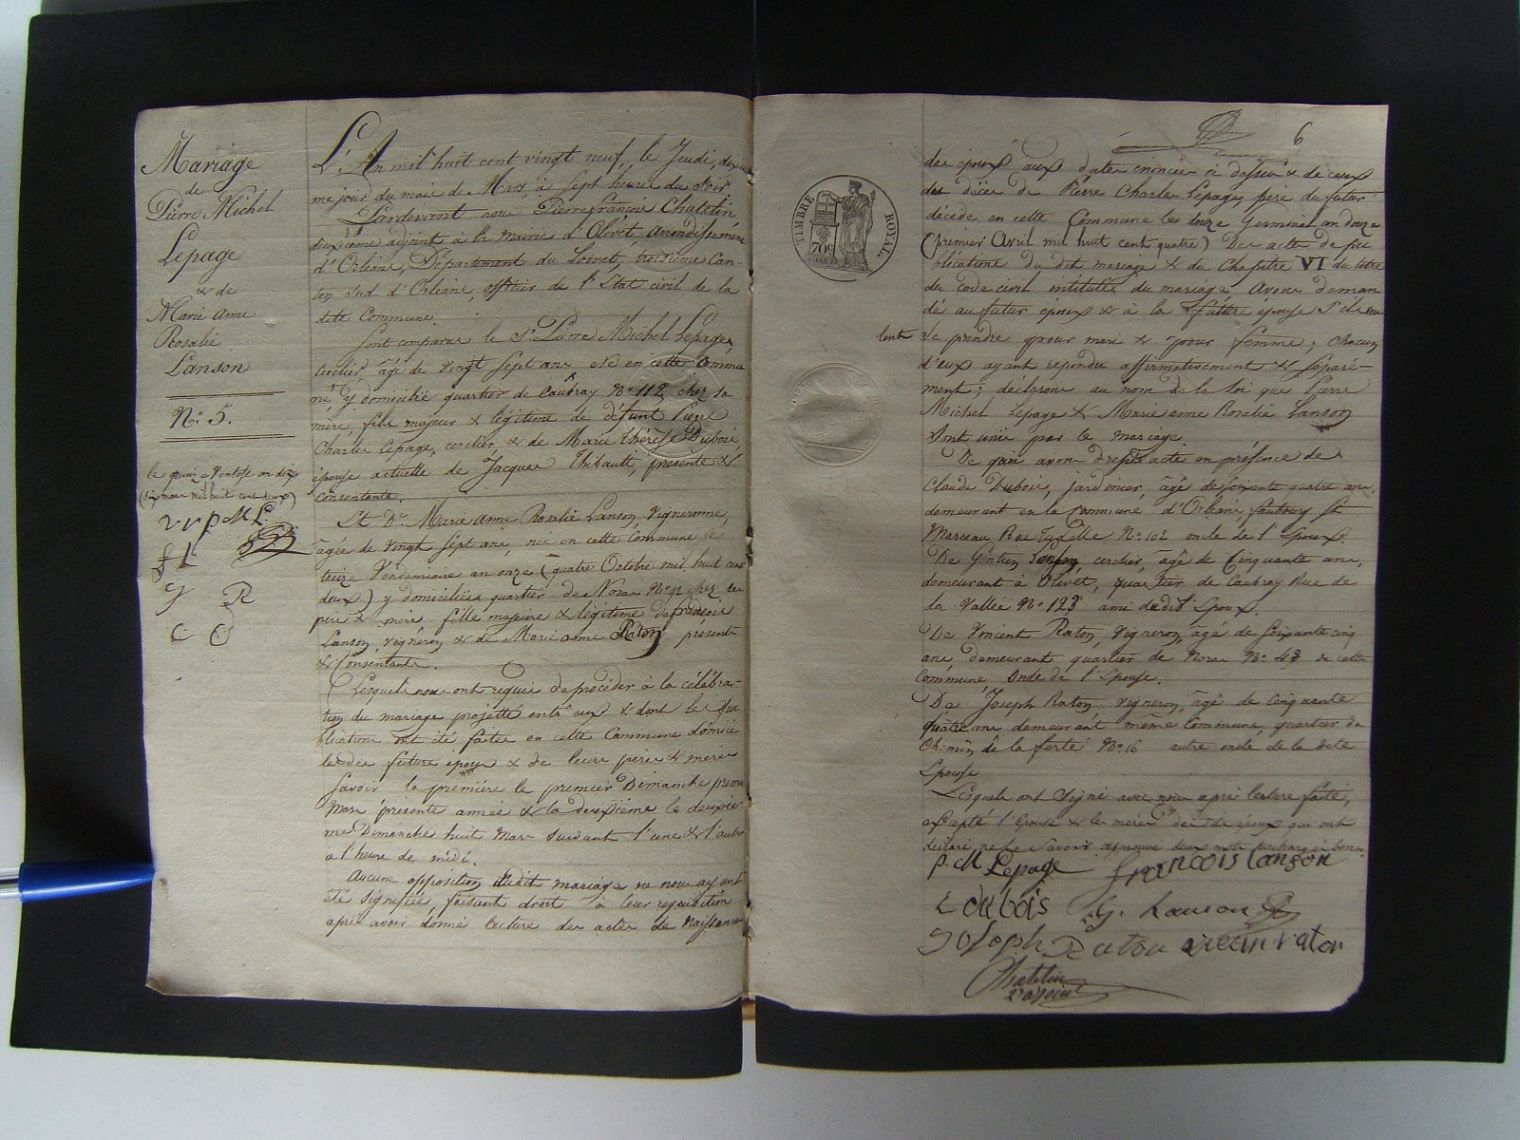 Mariage
de
Pierre Michel
Lepage
& de
Marie Anne
Rosalie
Lanson
N° 5.
le quinze Ventose an dix
(six mars mil huit cent deux)
P M L
f L
J R
C D
L'An mil huit cent vingt neuf, le Jeudi, douzie
me jour du mois de Mars, à Sept heures du Soir
Pardevant nous Pierre françois Chatelin,
deuxième adjoint à la Mairie d'Olivet arrondissement
d'Orléans, Département du Loiret, troisième Can-
ton Sud d'Orléans, officier de l'Etat civil de la
dite Commune.
Sont comparus le Sr. Pierre Michel Lepage,
cerclier âgé de vingt sept ans né en cette Commu
ne y domicilié quartier de Caubray N° 112 chez sa
mère, fils majeur & légitime de défunt Pierre
Charles Lepage, cerclier, & de Marie thérèse Dubois
épouse actuelle de Jacques Thibault, présente &
Consentante.
Et De. Marie Anne Rosalie Lanson, Vigneronne,
âgée de vingt sept ans, née en cette Commune le
treize Vendemiaire an onze (quatre Octobre mil huit cent
deux) y domiciliée quartier de Noras N° 42 chez ses
père & mère, fille majeure & légitime de françois
Lanson, vigneron & de Marie anne Raton, présents
& Consentants.
Lesquels nous ont requis de procéder à la célébra-
tion du mariage projetté entr'eux & dont les Pu
blications ont été faites en cette Commune Domici
le des futurs époux & de leurs pères & mères
Savoir la première le premier Dimanche premier
Mars présente année & la deuxième le deuxiè-
me Dimanche huit Mars Suivant l'une & l'autre
à l'heure de midi.
Aucune opposition audit mariage ne nous ayant
été signifiée, faisant droit à leur requisition
après avoir donné lecture des actes de Naissances
6
TIMBRE ROYAL
70c
des époux aux dates énoncées ci dessus & de ceux
des décès de Pierre Charles Lepage, père du futur
décédé en cette Commune les douze Germinal an douze
(premier Avril mil huit cent quatre) Des actes de pu
blications du dit mariage & du Chapitre VI du titre
du code civil intitulés du mariage Avons deman
dé au futur époux & à la future épouse S'ils veu
lent Se prendre pour mari & pour femme; chacun
d'eux ayant répondu affirmativement & Séparé-
ment; déclarons au nom de la loi que Pierre
Michel Lepage & Marie anne Rosalie Lanson
Sont unis par le mariage.
De quoi avons dressé acte en présence de
Claude Dubois, jardinier, âgé de soixante quatre ans,
demeurant en la Commune d'Orléans faubourg St.
Marceau Rue Tuzelle N° 102 oncle de l'Epoux.
De Gentien Lanson, cerclier, âgé de Cinquante ans,
demeurant à Olivet, quartier de Caubray Rue de
la Vallée N° 123 ami dudit Epoux.
De Vincent Raton, Vigneron, âgé de Soixante cinq
ans demeurant quartier de Noras N° 43 de cette
Commune, Oncle de l'Epouse.
De Joseph Raton vigneron, âgé de cinquante
quatre ans demeurant même Commune, quartier du
Chemin de la ferté N° 16 autre oncle de la dite
Epouse
Lesquels ont Signé avec nous après lecture faite,
excepté l'Epouse & les mères desdits époux qui ont
déclaré ne le Savoir
P. M Lepage françois lanson
C dubois G. Lanson
Joseph Raton vincent raton
Chatelin
2e adjoint